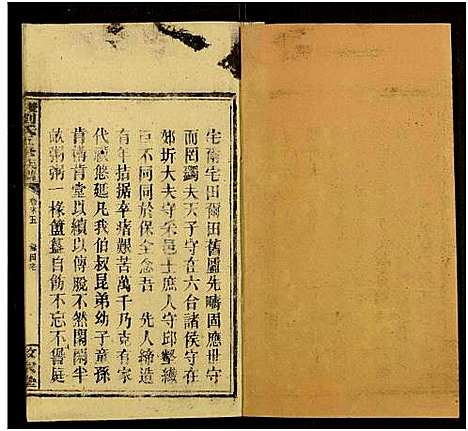 宅爾宅田爾田舊廬先疇固應世守
而罔蠲夫天子守在六合諸侯守在
郊圻大夫守采邑士庶人守邱壑纔
巨不同同於保全念吾 先人締造
有年拮据卒瘏艱苦萬千乃克有家
代續悠延凡我伯叔昆弟幼子童孫
肯構肯堂以續以傳脫不然閱閱半
畝粥粥一椽簠簋自飭不忘不愆庭
劉氏
卷末五